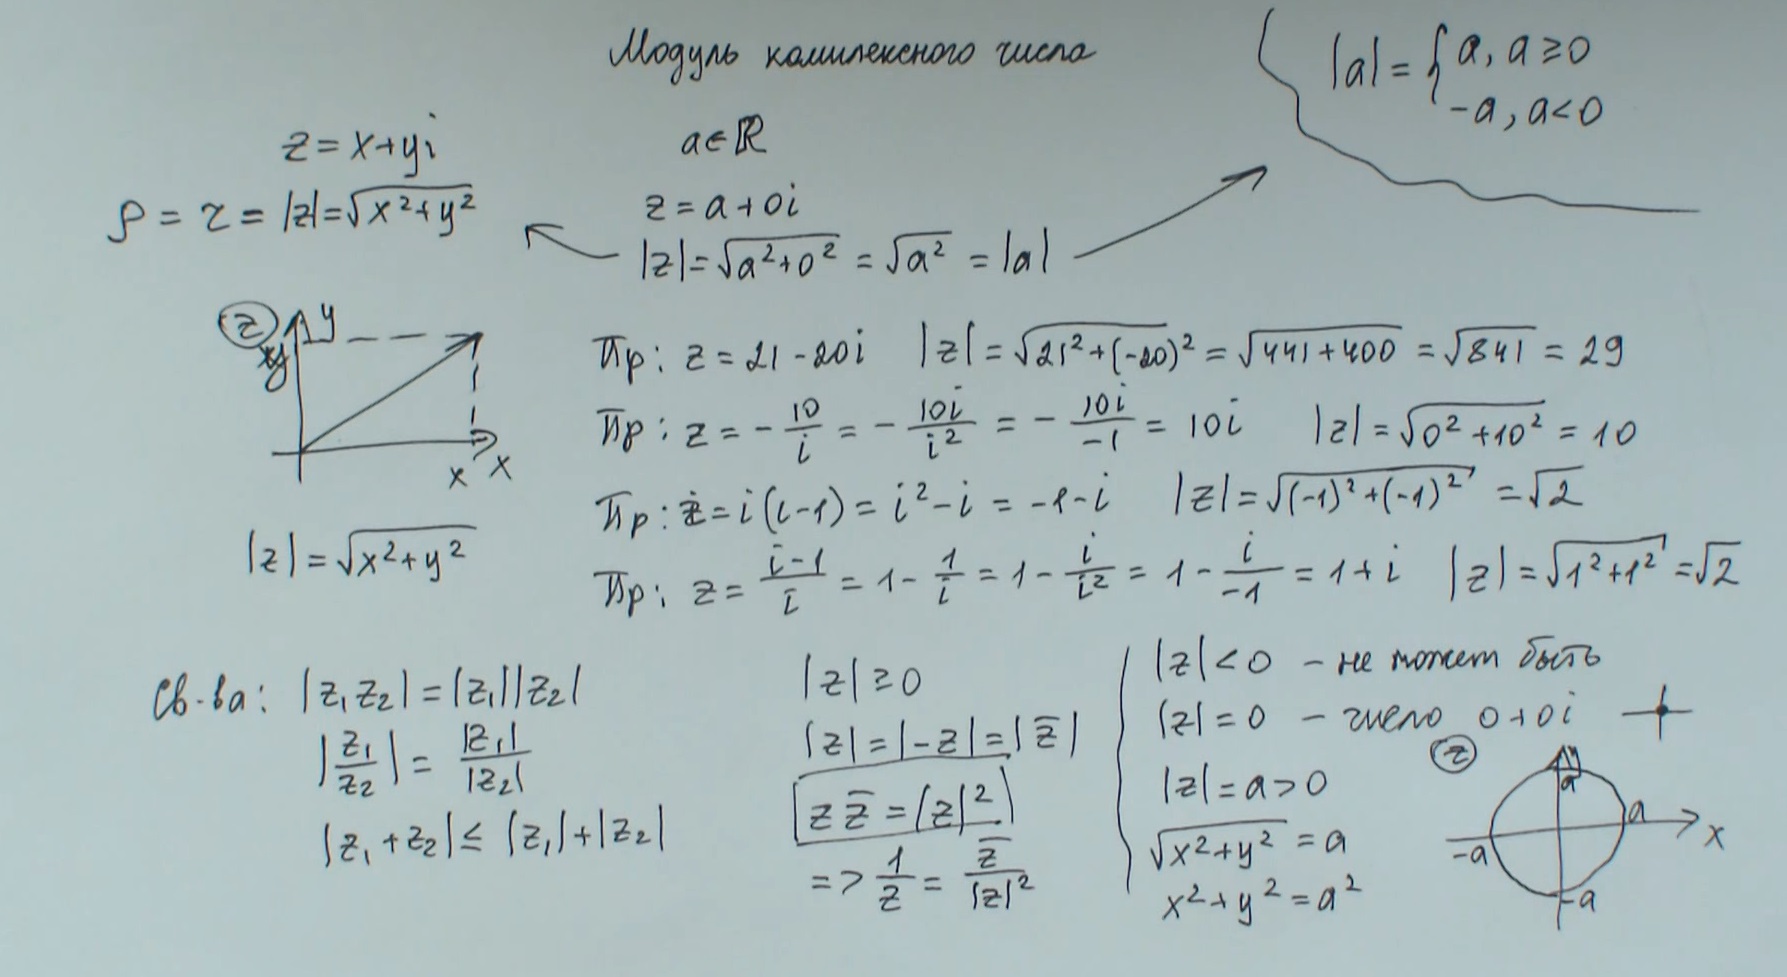 Модуль комплексного числа
|a| = { a, a ≥ 0
-a, a < 0
z = x + yi
ρ = r = |z| = √(x² + y²)
a ∈ ℝ
z = a + 0i
|z| = √(a² + 0²) = √(a²) = |a|
z
y
y
x x
|z| = √(x² + y²)
Пр: z = 21 - 20i |z| = √(21² + (-20)²) = √(441 + 400) = √841 = 29
Пр: z = - 10/i = - 10i/i² = - 10i/-1 = 10i |z| = √(0² + 10²) = 10
Пр: z = i(i-1) = i² - i = -1 - i |z| = √((-1)² + (-1)²) = √2
Пр: z = (i-1)/i = 1 - 1/i = 1 - i/i² = 1 - i/-1 = 1 + i |z| = √(1² + 1²) = √2
Св-ва: |z₁z₂| = |z₁||z₂|
|z₁/z₂| = |z₁|/|z₂|
|z₁ + z₂| ≤ |z₁| + |z₂|
|z| ≥ 0
|z| = |-z| = |z̄|
z z̄ = |z|²
=> 1/z = z̄/|z|²
|z| < 0 - не может быть
|z| = 0 - число 0 + 0i
|z| = a > 0
√(x² + y²) = a
x² + y² = a²
z
y
a
a
-a
x
-a